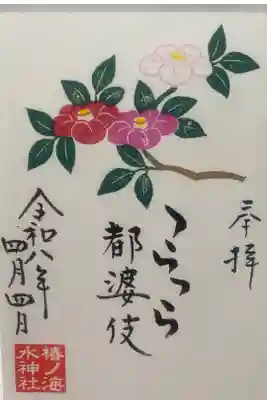 奉拝
つらつら
都婆伎
令和八年
四月四日
椿ノ海
水神社